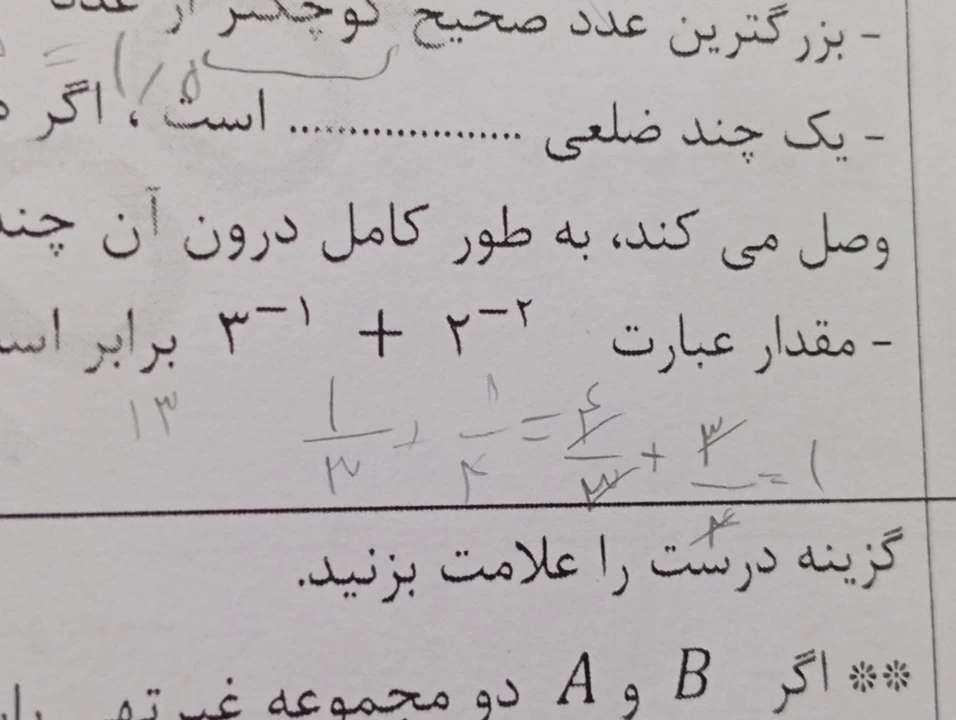 - بزرگترین عدد صحیح کوچکتر از عدد
= ۱/۵
- یک چند ضلعی .................... است ، اگر
وصل می کند، به طور کامل درون آن چند
- مقدار عبارت ۳⁻¹ + ۲⁻² برابر اس
۱/۳ + ۱/۴ = ۴/۳ + ۳/۴ = ۱
۱۳
گزینه درست را علامت بزنید.
** اگر B و A دو مجموعه غیرتهی